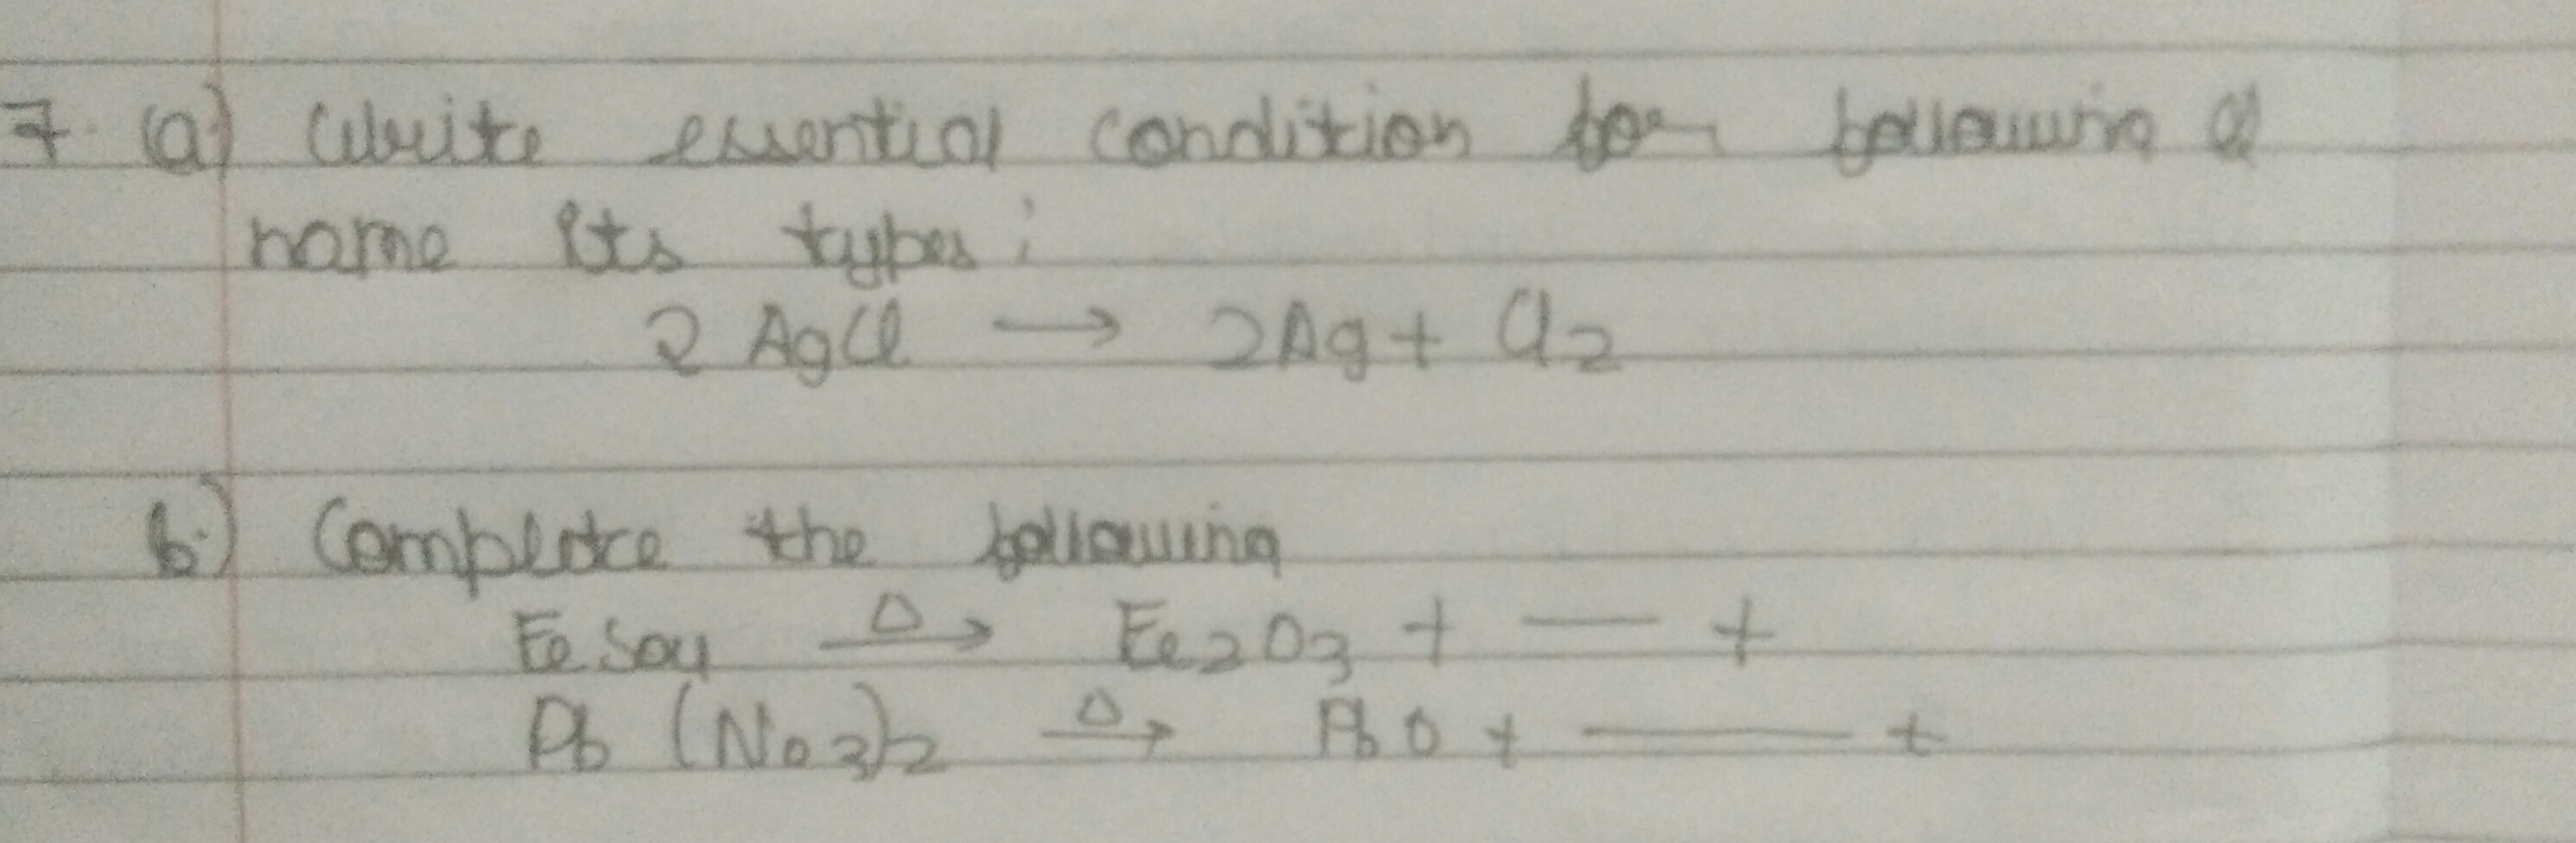 7. (a) Write essential condition for following &
name its types:
2 AgCl → 2Ag + Cl2
b.) Complete the following
FeSO4 Δ→ Fe2O3 + — +
Pb (NO3)2 Δ→ PbO + —— +